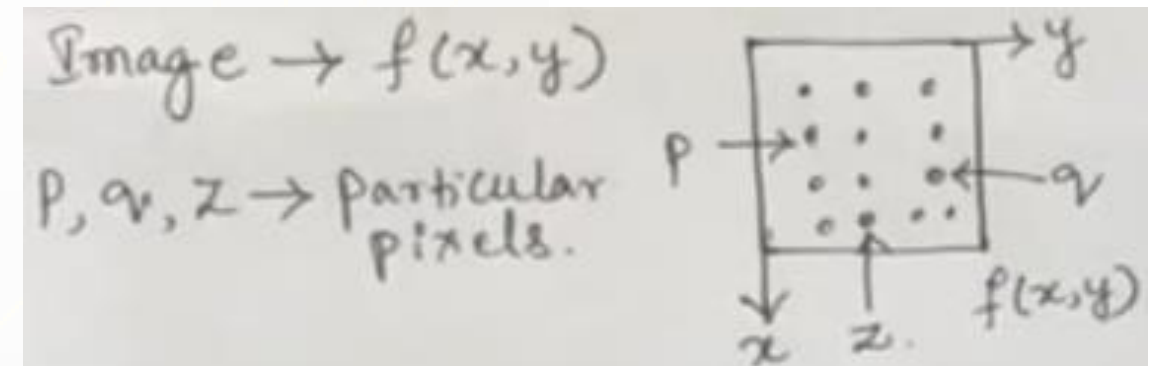 Image → f(x,y)
p, q, z → particular
pixels.
y
p
q
f(x,y)
x
z.